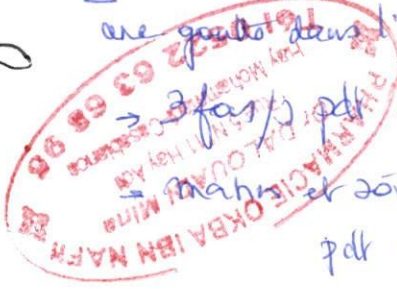 une goutte dans l'
→ 3 fois/j pdt
= matin et soir
pdt
PHARMACIE OKBA IBN NAFH
DALOUAH Mina
Hay Moham
Casablanca
Tel 522 63 68 98